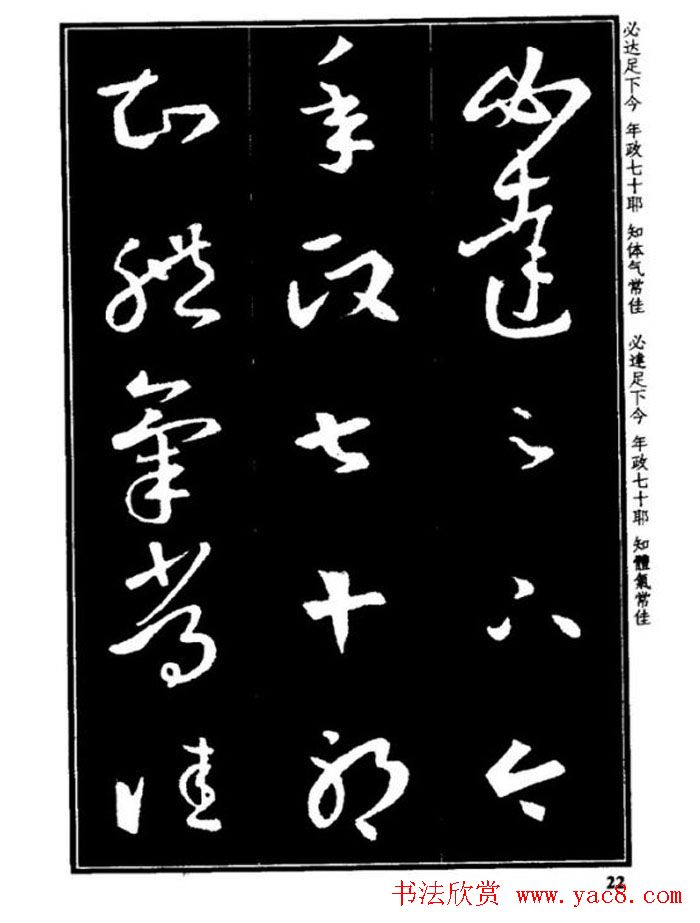 必達足下今
年政七十耶
知體氣常佳
必达足下今 年政七十耶 知体气常佳
必達足下今 年政七十耶 知體氣常佳
22
书法欣赏 www.yac8.com